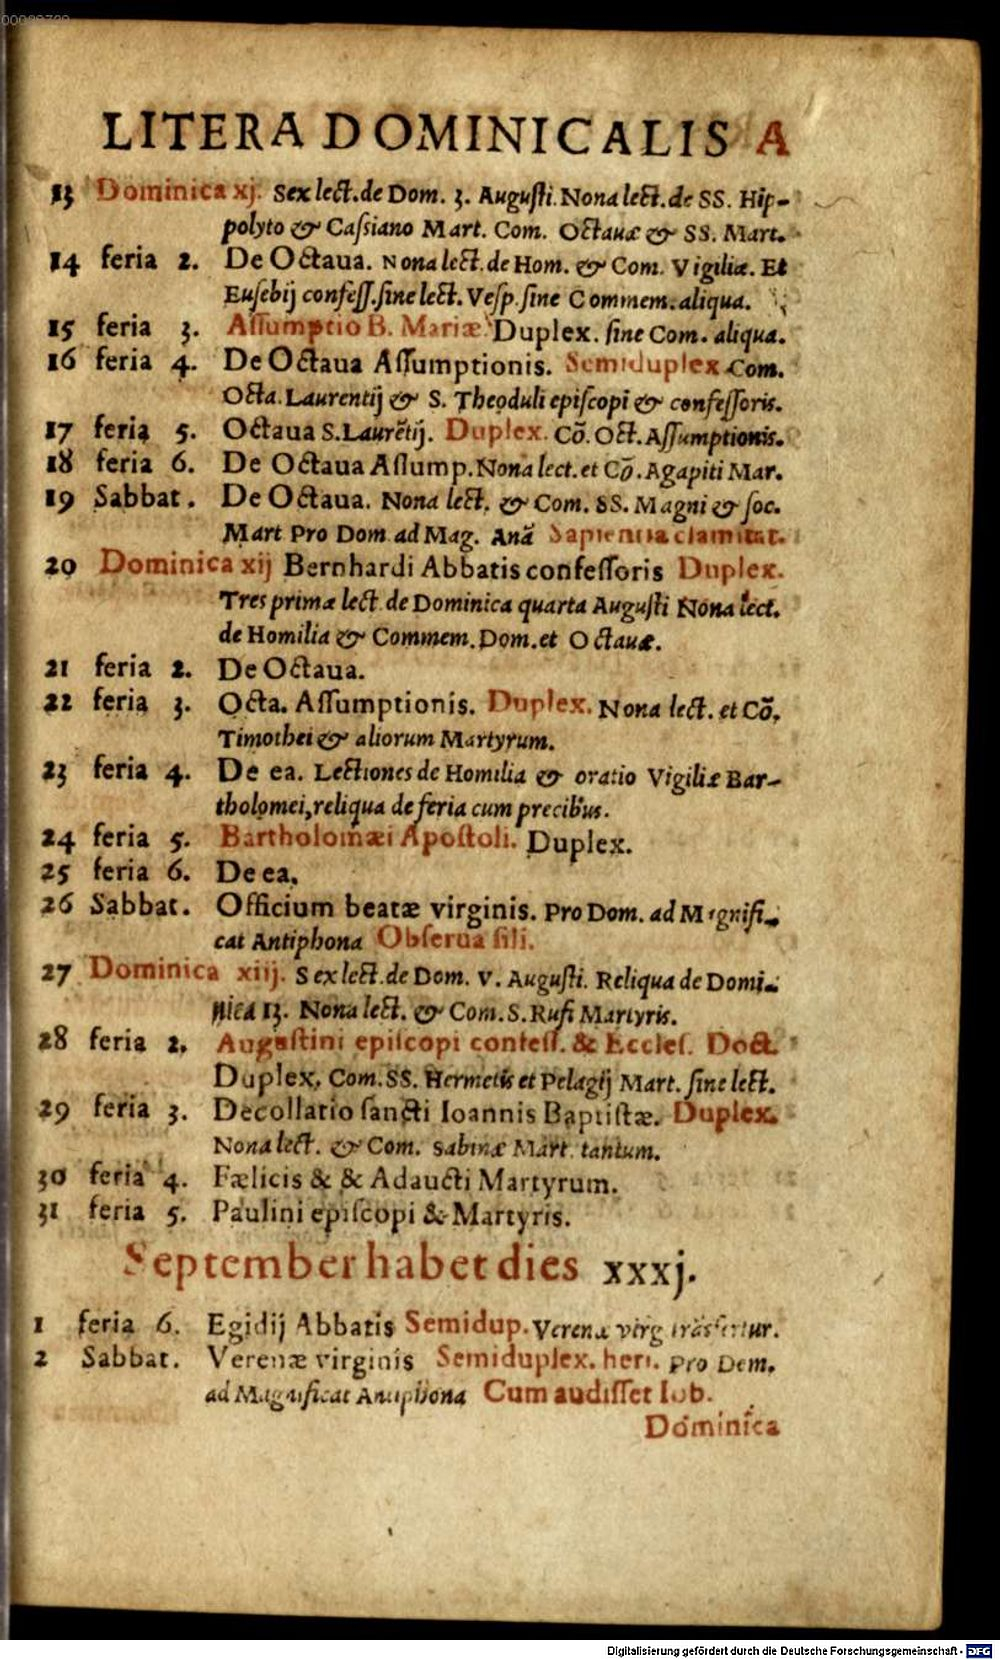 LITERA DOMINICALIS A
13 Dominica xj. Sex lect. de Dom. 3. Augusti. Nona lect. de SS. Hip-
polyto & Cassiano Mart. Com. Octauæ & SS. Mart.
14 feria 2. De Octaua. Nona lect. de Hom. & Com. Vigiliæ. Et
Eusebij confess. sine lect. Vesp. sine Commem. aliqua.
15 feria 3. Assumptio B. Mariæ. Duplex. sine Com. aliqua.
16 feria 4. De Octaua Assumptionis. Semiduplex Com.
Octa. Laurentij & S. Theoduli episcopi & confessoris.
17 feria 5. Octaua S. Laurẽtij. Duplex. Cõ. Oct. Assumptionis.
18 feria 6. De Octaua Assump. Nona lect. et Cõ. Agapiti Mar.
19 Sabbat. De Octaua. Nona lect. & Com. SS. Magni & soc.
Mart Pro Dom ad Mag. Anã Sapientia clamitat.
20 Dominica xij Bernhardi Abbatis confessoris Duplex.
Tres primæ lect. de Dominica quarta Augusti Nona lect.
de Homilia & Commem. Dom. et Octauæ.
21 feria 2. De Octaua.
22 feria 3. Octa. Assumptionis. Duplex. Nona lect. et Cõ.
Timothei & aliorum Martyrum.
23 feria 4. De ea. Lectiones de Homilia & oratio Vigiliæ Bar-
tholomei, reliqua de feria cum precibus.
24 feria 5. Bartholomæi Apostoli. Duplex.
25 feria 6. De ea.
26 Sabbat. Officium beatæ virginis. Pro Dom. ad Magnifi-
cat Antiphona Obserua fili.
27 Dominica xiij. Sex lect. de Dom. V. Augusti. Reliqua de Domi-
nica 13. Nona lect. & Com. S. Rufi Martyris.
28 feria 2. Augustini episcopi confess. & Eccles. Doct.
Duplex. Com. SS. Hermetis et Pelagij Mart. sine lect.
29 feria 3. Decollatio sancti Ioannis Baptistæ. Duplex.
Nona lect. & Com. Sabinæ Mart. tantum.
30 feria 4. Fælicis & & Adaucti Martyrum.
31 feria 5. Paulini episcopi & Martyris.
September habet dies xxxj.
1 feria 6. Egidij Abbatis Semidup. Verenæ virg trãsfertur.
2 Sabbat. Verenæ virginis Semiduplex. heri. Pro Dom.
ad Magnificat Antiphona Cum audisset Iob.
Dominica
Digitalisierung gefördert durch die Deutsche Forschungsgemeinschaft - DFG